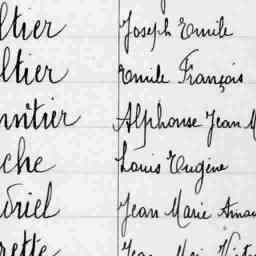 ltier Joseph Emile
ltier Emile François
Alphonse Jean M
che Louis Eugène
driel Jean Marie Aman
rette Jean